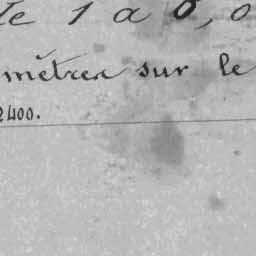 de 1 à 0,0
mètres sur le
2400.